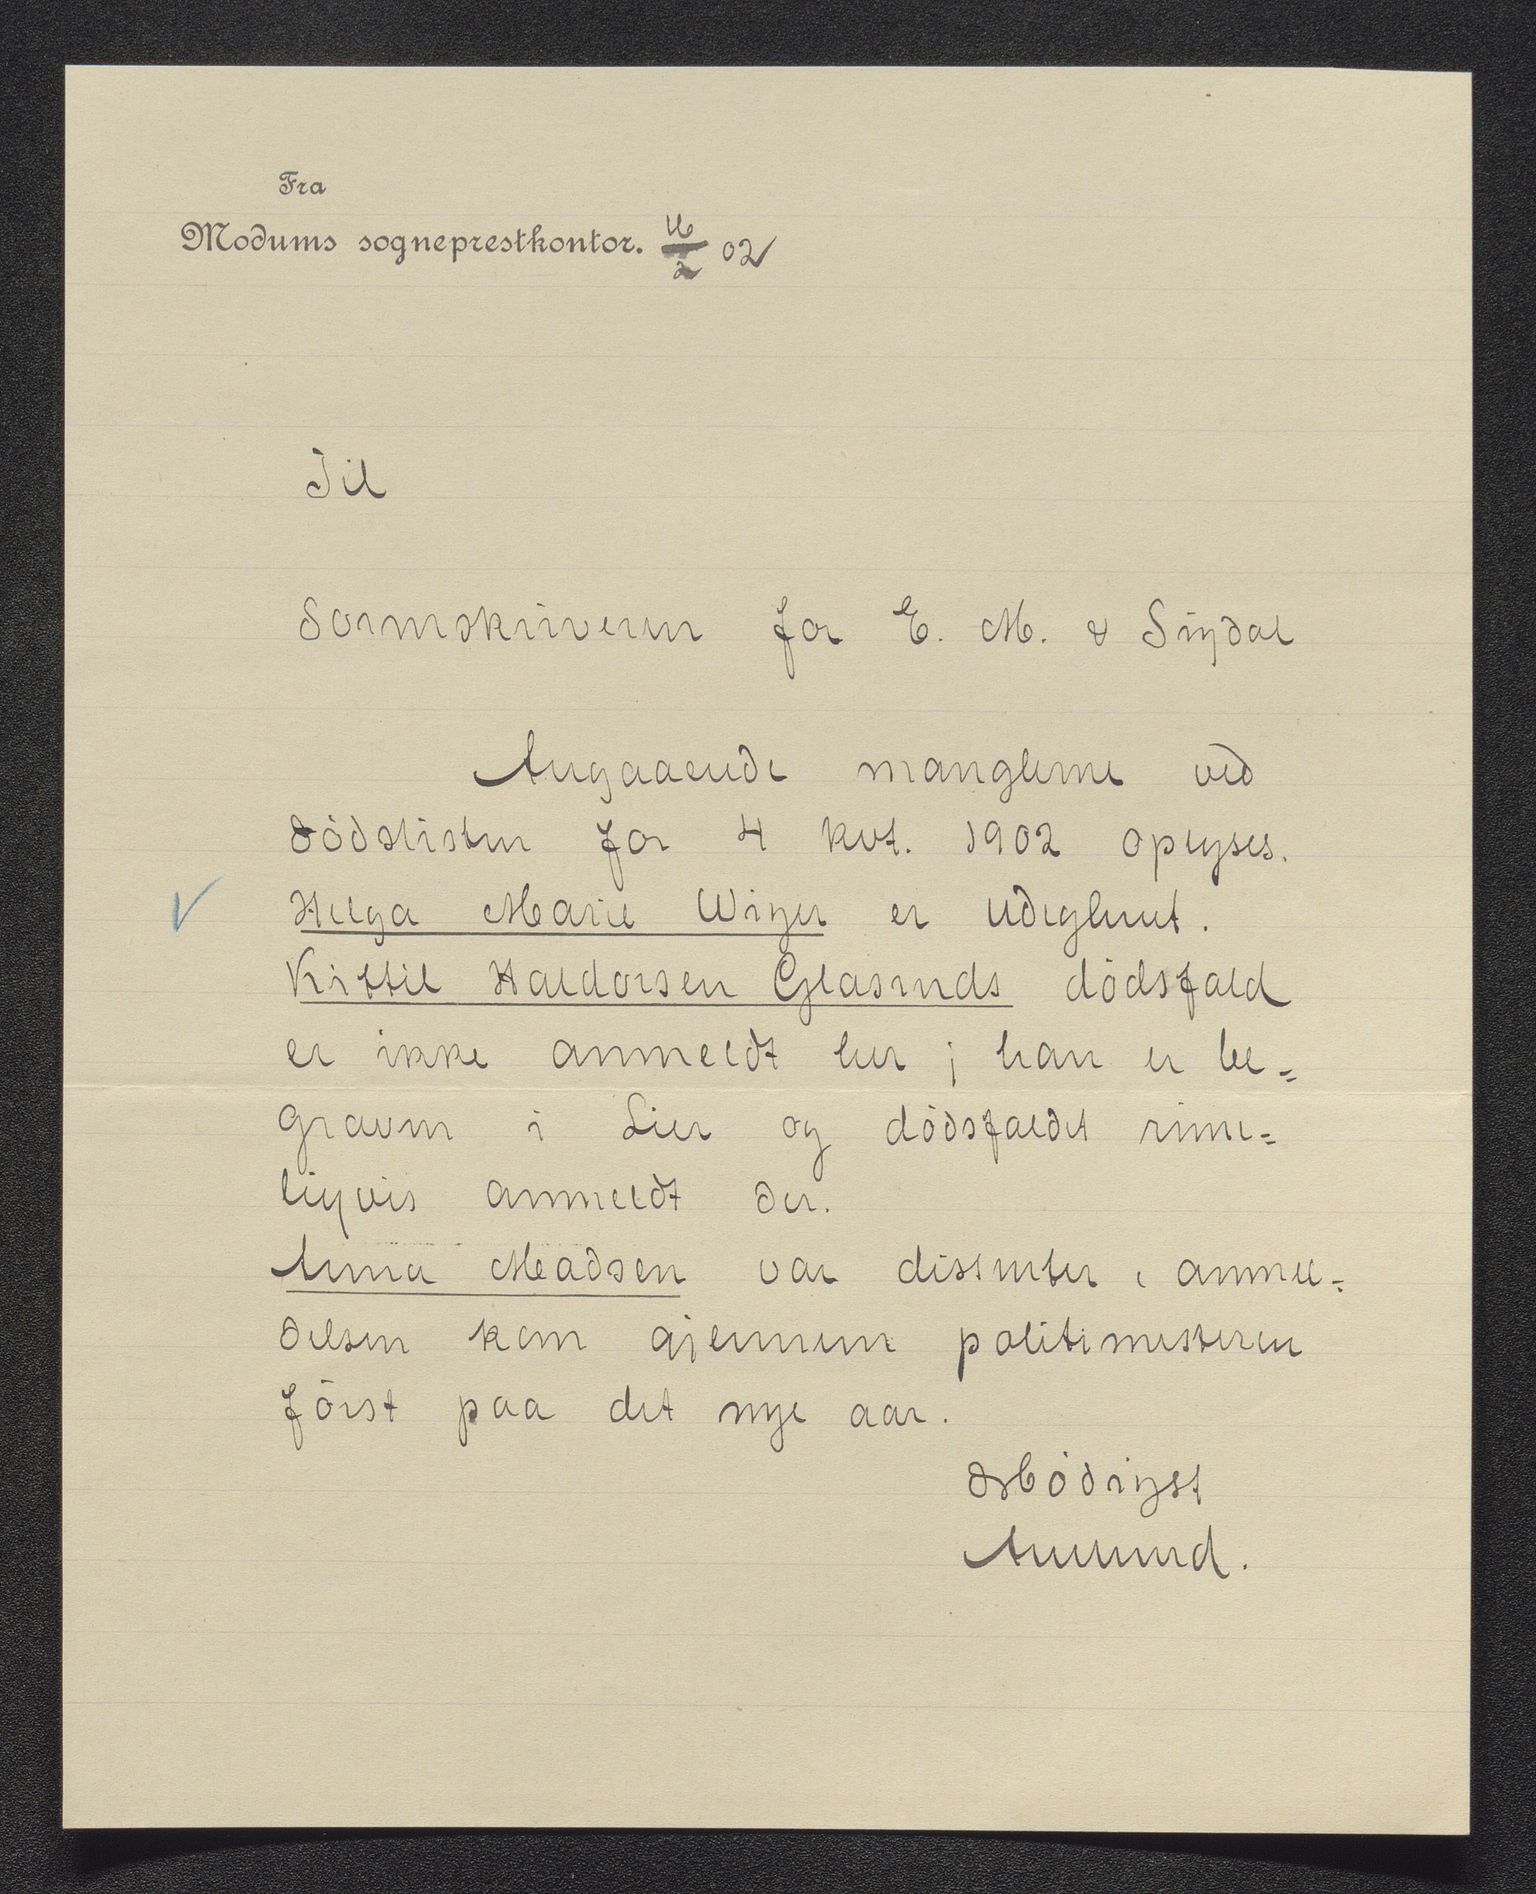 Fra
Modums sogneprestkontor. 16/2 02
Til
Sorenskriveren for E. M. & Sigdal
Angaaende manglerne ved
dödslisten for 4 kvt. 1902 oplyses.
Helga Marie Wiger er udeglemt.
Kittil Haldorsen Glasruds dödsfald
er ikke anmeldt her; han er be=
graven i Lier og dödsfaldet rime=
ligvis anmeldt der.
Anna Madsen var dissenter, anmel=
delsen kom gjennem politimesteren
först paa det nye aar.
Ærbödigst